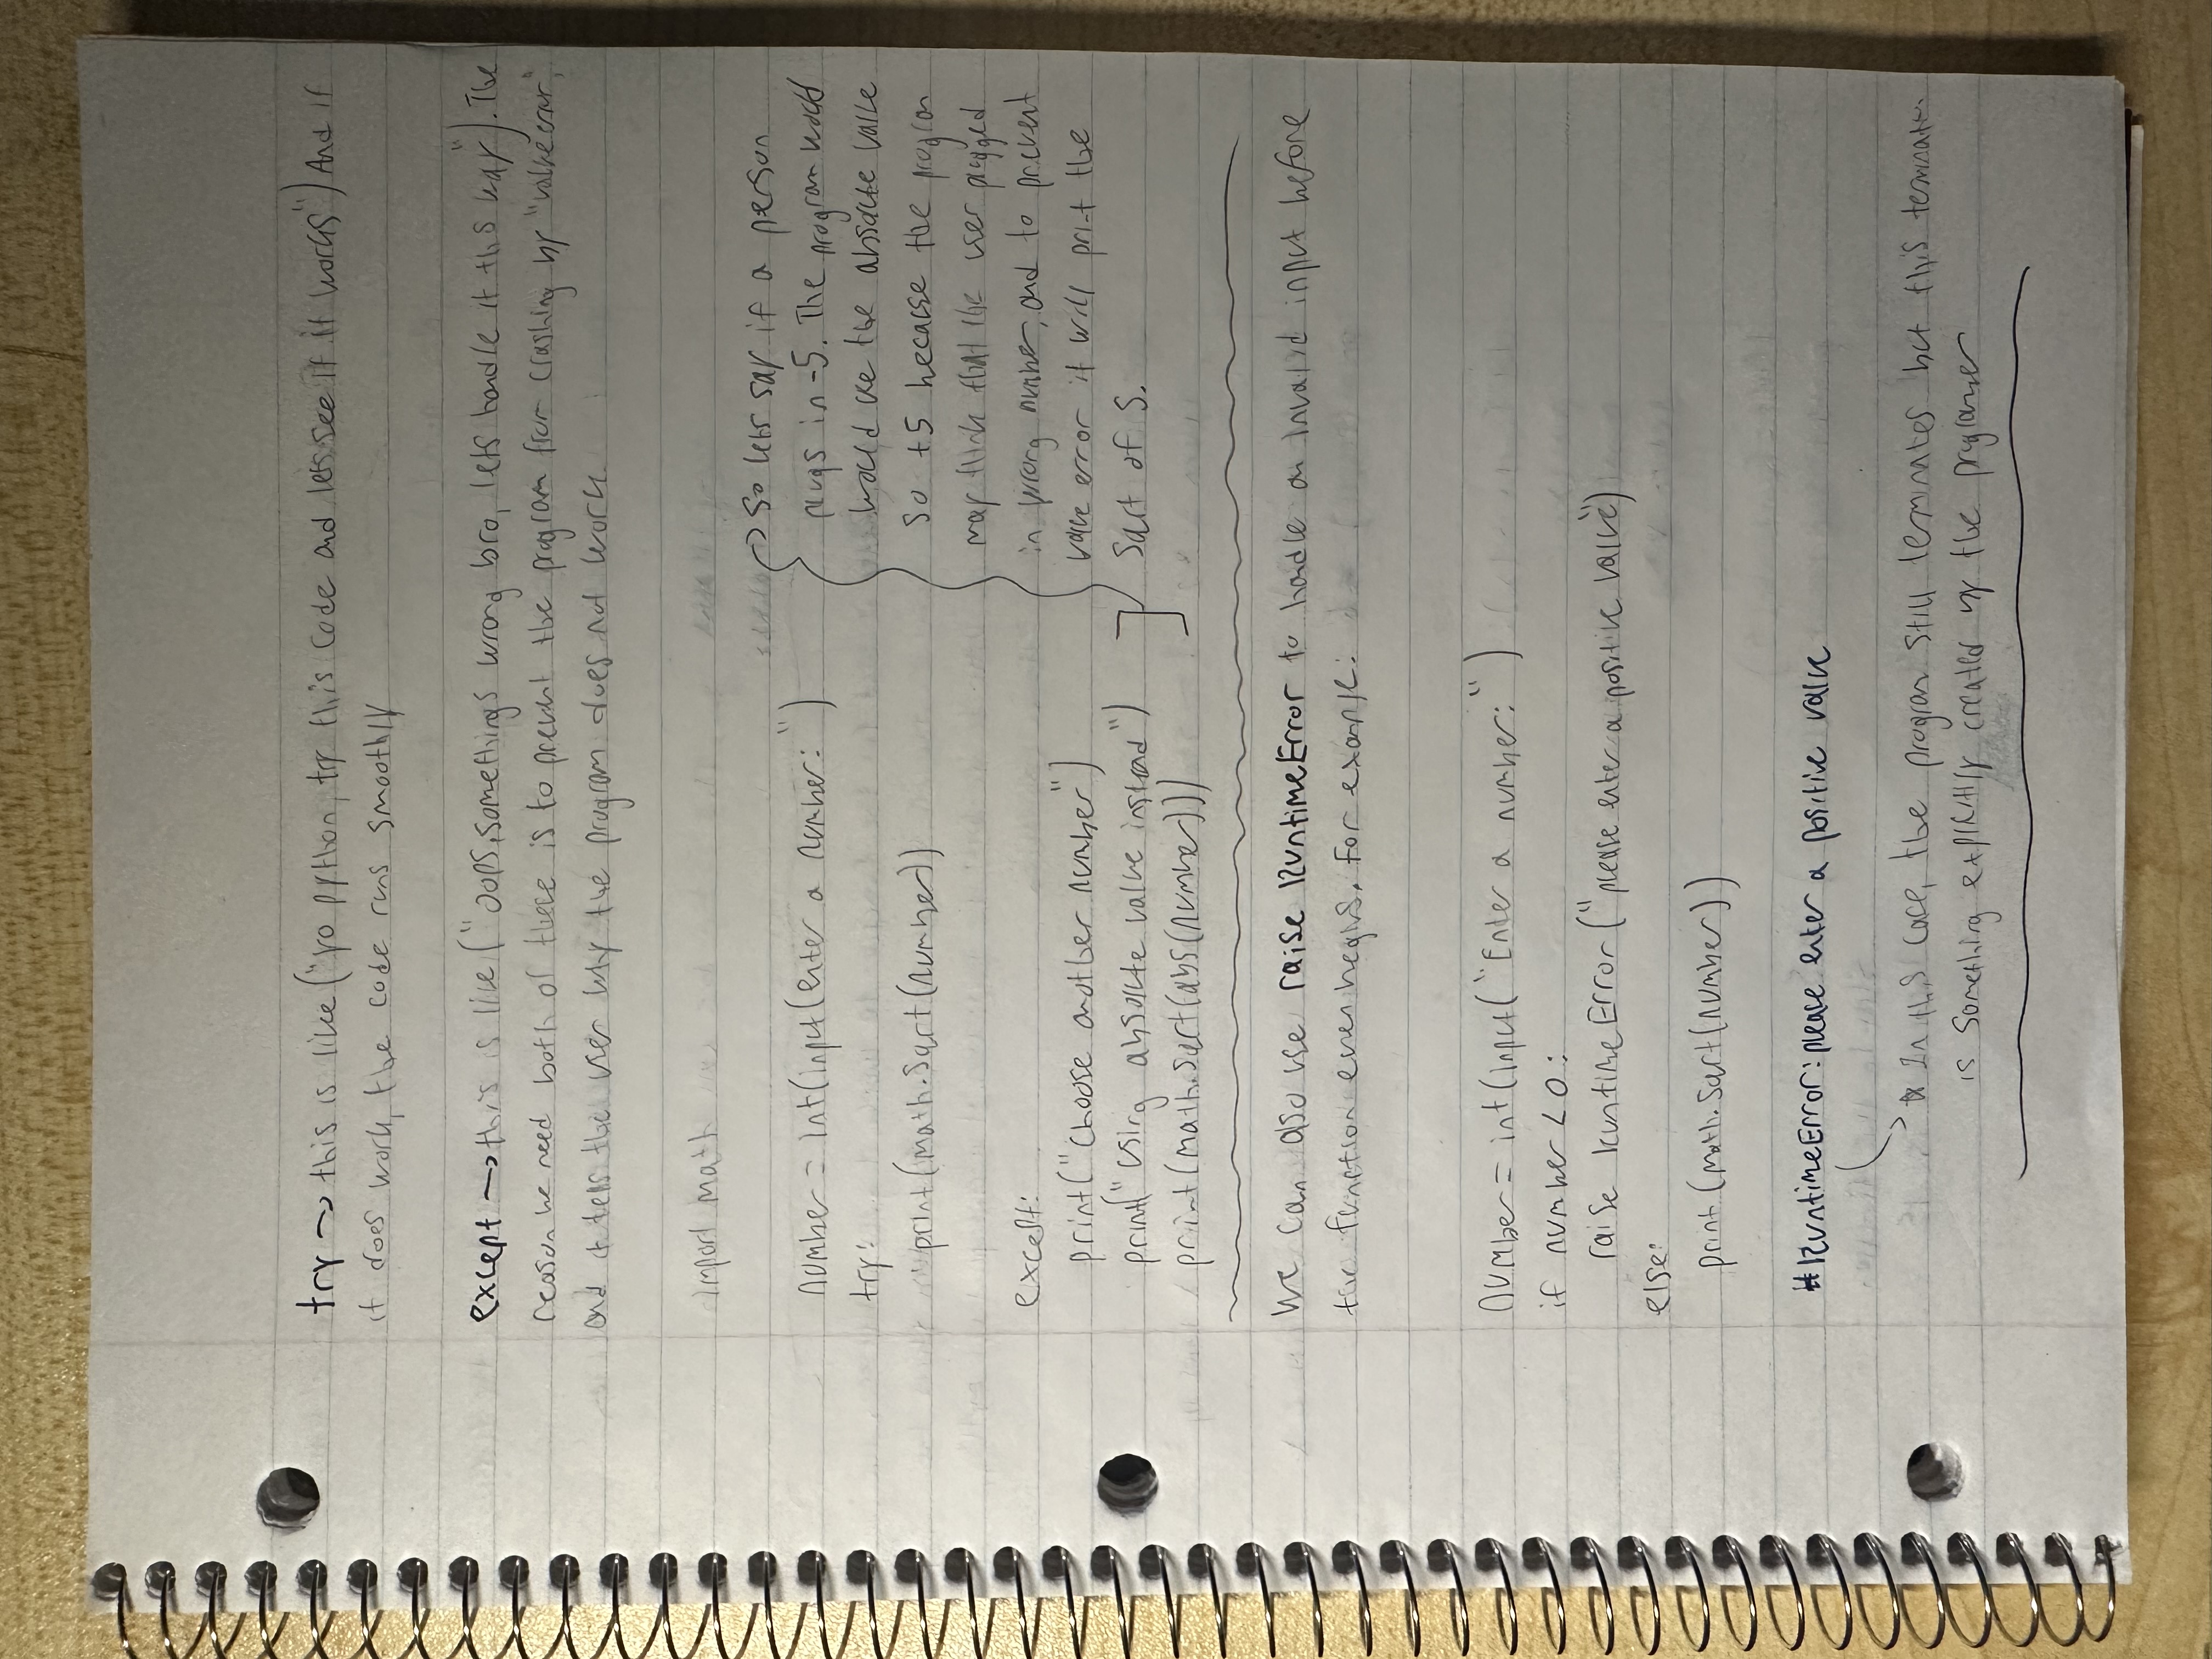 try → this is like ("yo python, try this code and lets see if it works") And if
it does work, the code runs smoothly
except → this is like ("oops, somethings wrong bro, lets handle it this way"). The
reason we need both of these is to prevent the program from crashing by "value error",
and it tells the user why the program does not work
import math
number = int(input(enter a number:")
try:
print(math.sqrt(number))
except:
print("Choose another number")
print("Using absolute value instead")
print(math.sqrt(abs(number)))
→ So lets say if a person
plugs in -5. The program would
would use the absolute value
so +5 because the program
may think that the user plugged
in wrong number, and to prevent
value error it will print the
sqrt of 5.
We can also use raise RuntimeError to handle an invalid input before
the function even begins. For example:
number = int(input("Enter a number:")
if number < 0:
raise RuntimeError("please enter a positive value")
else:
print(math.sqrt(number))
#RuntimeError: please enter a positive value
* In this case, the program still terminates but this
is something explicitly created by the programer